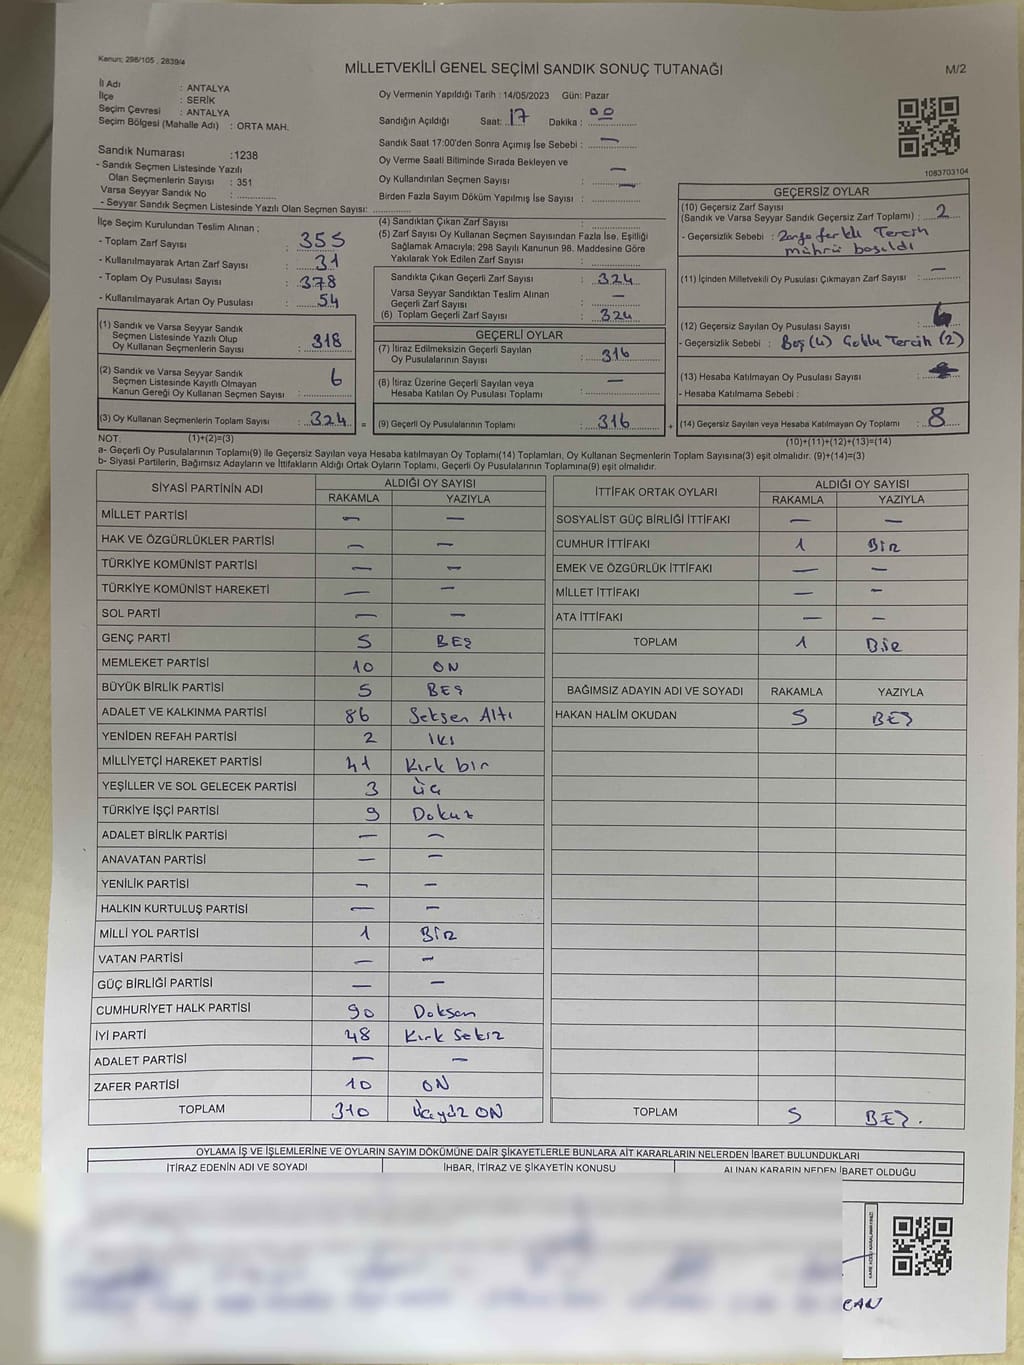 Kanun: 298/105 , 2839/4
MİLLETVEKİLİ GENEL SEÇİMİ SANDIK SONUÇ TUTANAĞI
M/2
İl Adı : ANTALYA
İlçe : SERİK
Seçim Çevresi : ANTALYA
Seçim Bölgesi (Mahalle Adı) : ORTA MAH.
Oy Vermenin Yapıldığı Tarih : 14/05/2023 Gün: Pazar
Sandığın Açıldığı Saat: 17 Dakika : 00
Sandık Saat 17:00'den Sonra Açımış İse Sebebi : —
Oy Verme Saati Bitiminde Sırada Bekleyen ve
Oy Kullandırılan Seçmen Sayısı : —
Birden Fazla Sayım Döküm Yapılmış İse Sayısı : —
1083703104
Sandık Numarası :1238
- Sandık Seçmen Listesinde Yazılı
Olan Seçmenlerin Sayısı : 351
Varsa Seyyar Sandık No :
- Seyyar Sandık Seçmen Listesinde Yazılı Olan Seçmen Sayısı:
İlçe Seçim Kurulundan Teslim Alınan ;
- Toplam Zarf Sayısı : 355
- Kullanılmayarak Artan Zarf Sayısı : 31
- Toplam Oy Pusulası Sayısı : 378
- Kullanılmayarak Artan Oy Pusulası : 54
(1) Sandık ve Varsa Seyyar Sandık
Seçmen Listesinde Yazılı Olup
Oy Kullanan Seçmenlerin Sayısı : 318
(2) Sandık ve Varsa Seyyar Sandık
Seçmen Listesinde Kayıtlı Olmayan
Kanun Gereği Oy Kullanan Seçmen Sayısı : 6
(3) Oy Kullanan Seçmenlerin Toplam Sayısı : 324 =
(4) Sandıktan Çıkan Zarf Sayısı :
(5) Zarf Sayısı Oy Kullanan Seçmen Sayısından Fazla İse, Eşitliği
Sağlamak Amacıyla; 298 Sayılı Kanunun 98. Maddesine Göre
Yakılarak Yok Edilen Zarf Sayısı :
Sandıkta Çıkan Geçerli Zarf Sayısı : 324
Varsa Seyyar Sandıktan Teslim Alınan
Geçerli Zarf Sayısı : —
(6) Toplam Geçerli Zarf Sayısı : 324
GEÇERLİ OYLAR
(7) İtiraz Edilmeksizin Geçerli Sayılan
Oy Pusulalarının Sayısı : 316
(8) İtiraz Üzerine Geçerli Sayılan veya
Hesaba Katılan Oy Pusulası Toplamı : —
(9) Geçerli Oy Pusulalarının Toplamı : 316 +
GEÇERSİZ OYLAR
(10) Geçersiz Zarf Sayısı
(Sandık ve Varsa Seyyar Sandık Geçersiz Zarf Toplamı) : 2
- Geçersizlik Sebebi : Zarfa farklı Tercih
mührü basıldı
(11) İçinden Milletvekili Oy Pusulası Çıkmayan Zarf Sayısı : —
(12) Geçersiz Sayılan Oy Pusulası Sayısı : 6
- Geçersizlik Sebebi : Boş (4) Çoklu Tercih (2)
(13) Hesaba Katılmayan Oy Pusulası Sayısı :
- Hesaba Katılmama Sebebi :
(14) Geçersiz Sayılan veya Hesaba Katılmayan Oy Toplamı : 8
NOT: (1)+(2)=(3)
(10)+(11)+(12)+(13)=(14)
a- Geçerli Oy Pusulalarının Toplamı(9) ile Geçersiz Sayılan veya Hesaba katılmayan Oy Toplamı(14) Toplamları, Oy Kullanan Seçmenlerin Toplam Sayısına(3) eşit olmalıdır. (9)+(14)=(3)
b- Siyasi Partilerin, Bağımsız Adayların ve İttifakların Aldığı Ortak Oyların Toplamı, Geçerli Oy Pusulalarının Toplamına(9) eşit olmalıdır.
SİYASİ PARTİNİN ADI ALDIĞI OY SAYISI
RAKAMLA YAZIYLA
MİLLET PARTİSİ — —
HAK VE ÖZGÜRLÜKLER PARTİSİ — —
TÜRKİYE KOMÜNİST PARTİSİ — —
TÜRKİYE KOMÜNİST HAREKETİ — —
SOL PARTİ — —
GENÇ PARTİ 5 BEŞ
MEMLEKET PARTİSİ 10 ON
BÜYÜK BİRLİK PARTİSİ 5 BEŞ
ADALET VE KALKINMA PARTİSİ 86 Seksen Altı
YENİDEN REFAH PARTİSİ 2 İKİ
MİLLİYETÇİ HAREKET PARTİSİ 41 Kırk bir
YEŞİLLER VE SOL GELECEK PARTİSİ 3 Üç
TÜRKİYE İŞÇİ PARTİSİ 9 Dokuz
ADALET BİRLİK PARTİSİ — —
ANAVATAN PARTİSİ — —
YENİLİK PARTİSİ — —
HALKIN KURTULUŞ PARTİSİ — —
MİLLİ YOL PARTİSİ 1 BİR
VATAN PARTİSİ — —
GÜÇ BİRLİĞİ PARTİSİ — —
CUMHURİYET HALK PARTİSİ 90 Doksan
İYİ PARTİ 48 Kırk Sekiz
ADALET PARTİSİ — —
ZAFER PARTİSİ 10 ON
TOPLAM 310 Üçyüz ON
İTTİFAK ORTAK OYLARI ALDIĞI OY SAYISI
RAKAMLA YAZIYLA
SOSYALİST GÜÇ BİRLİĞİ İTTİFAKI — —
CUMHUR İTTİFAKI 1 BİR
EMEK VE ÖZGÜRLÜK İTTİFAKI — —
MİLLET İTTİFAKI — —
ATA İTTİFAKI — —
TOPLAM 1 Bir
BAĞIMSIZ ADAYIN ADI VE SOYADI RAKAMLA YAZIYLA
HAKAN HALİM OKUDAN 5 BEŞ
TOPLAM 5 BEŞ.
OYLAMA İŞ VE İŞLEMLERİNE VE OYLARIN SAYIM DÖKÜMÜNE DAİR ŞİKAYETLERLE BUNLARA AİT KARARLARIN NELERDEN İBARET BULUNDUKLARI
İTİRAZ EDENİN ADI VE SOYADI İHBAR, İTİRAZ VE ŞİKAYETİN KONUSU ALINAN KARARIN NEDEN İBARET OLDUĞU
CAN